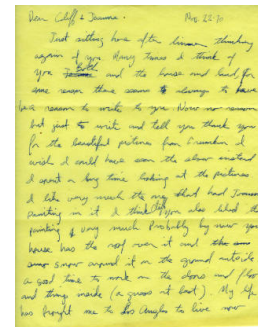 Dear Cliff & Joanne. Nov. 25-70
Just sitting here after dinner thinking
again of you. Many times I think of
you both and the house and land, for
some reason there seems to always to have
be a reason to write to you. Now no reason
but just to write and tell you thank you
for the beautiful pictures from I
wish I could have seen the show instead
I spent a long time looking at the pictures
I like very much the one that had Joannes
painting in it I think. If you also liked the
painting & very much Probably by now your
house has the roof over it and
snow around it on the ground outside
a good time to work on the doors and floor
and things inside (a guess at best). My life
has brought me to Los Angles to live now